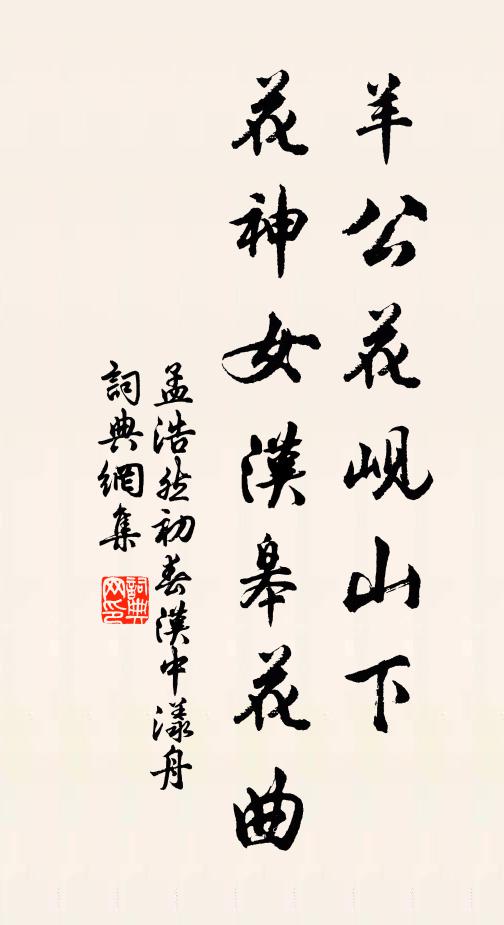 羊公花峴山下
花神女漢皋花曲
孟浩然初春漢中漾舟
詞典網集
詞典
网印